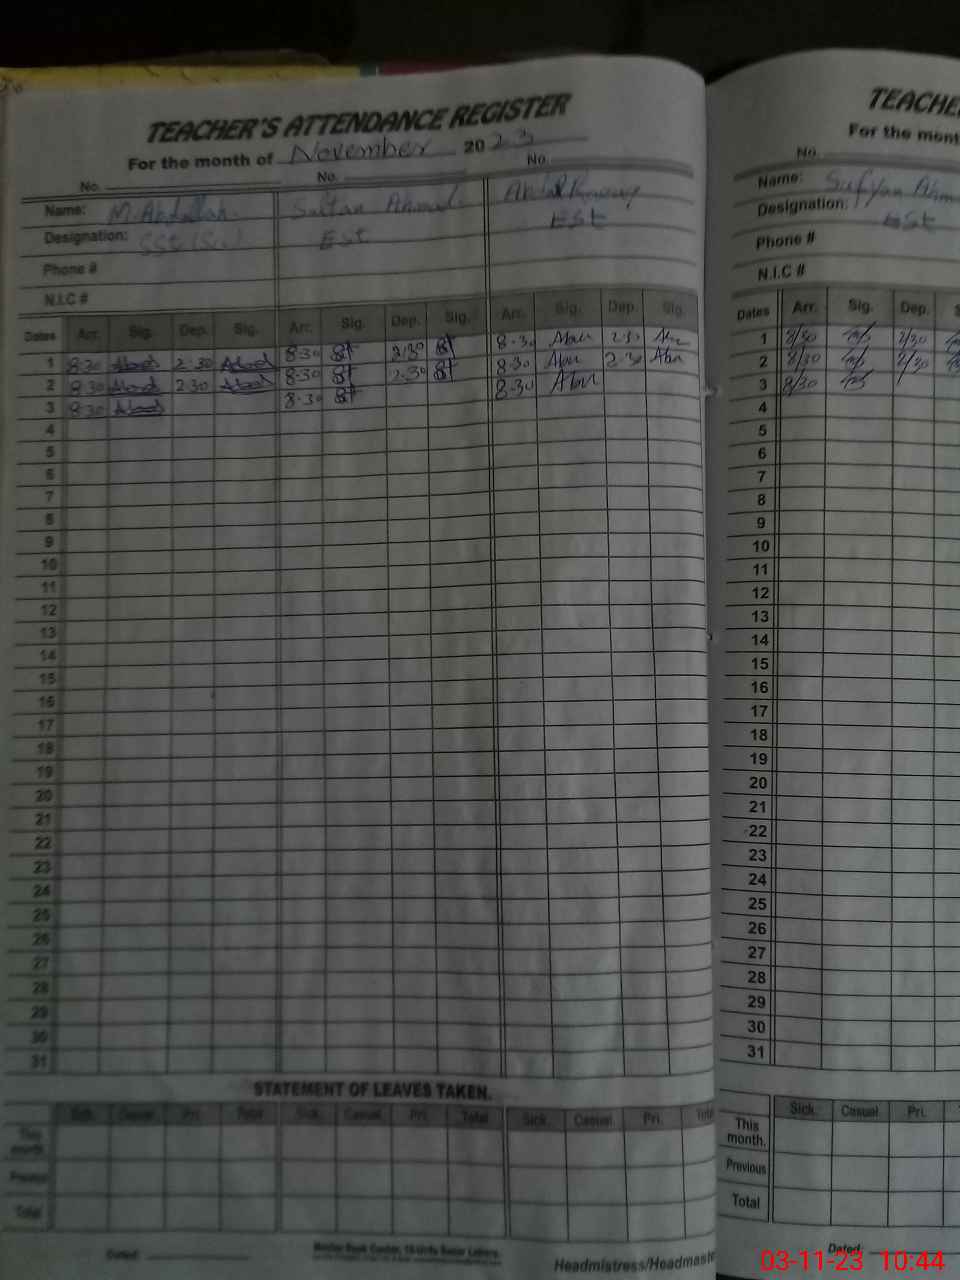 TEACHER'S ATTENDANCE REGISTER
For the month of November 2023
No. No. No.
Name: M. Abdullah Sultan Ahmad
Designation: SSt (Sci) Est Est
Phone #
N.I.C #
Dates Arr. Sig. Dep. Sig. Arr. Sig. Dep. Sig. Arr. Sig. Dep. Sig.
1 8·30 2·30 8·30 2·30 8·30 2·30
2 8·30 2·30 8·30 2·30 8·30 2·30
3 8·30 8·30 8·30
4
5
6
7
8
9
10
11
12
13
14
15
16
17
18
19
20
21
22
23
24
25
26
27
28
29
30
31
STATEMENT OF LEAVES TAKEN.
Sick. Casual. Pri. Total Sick. Casual. Pri. Total Sick. Casual. Pri. Total
This month.
Previous
Total
Dated:
Headmistress/Headmast
TEACHE
For the mon
No.
Name: Sufyan Ahm
Designation: Est
Phone #
N.I.C #
Dates Arr. Sig. Dep. S
1 8/30 2/30
2 8/30 2/30
3 8/30
4
5
6
7
8
9
10
11
12
13
14
15
16
17
18
19
20
21
22
23
24
25
26
27
28
29
30
31
Sick. Casual Pri.
This
month.
Previous
Total
Dated:
03-11-23 10:44